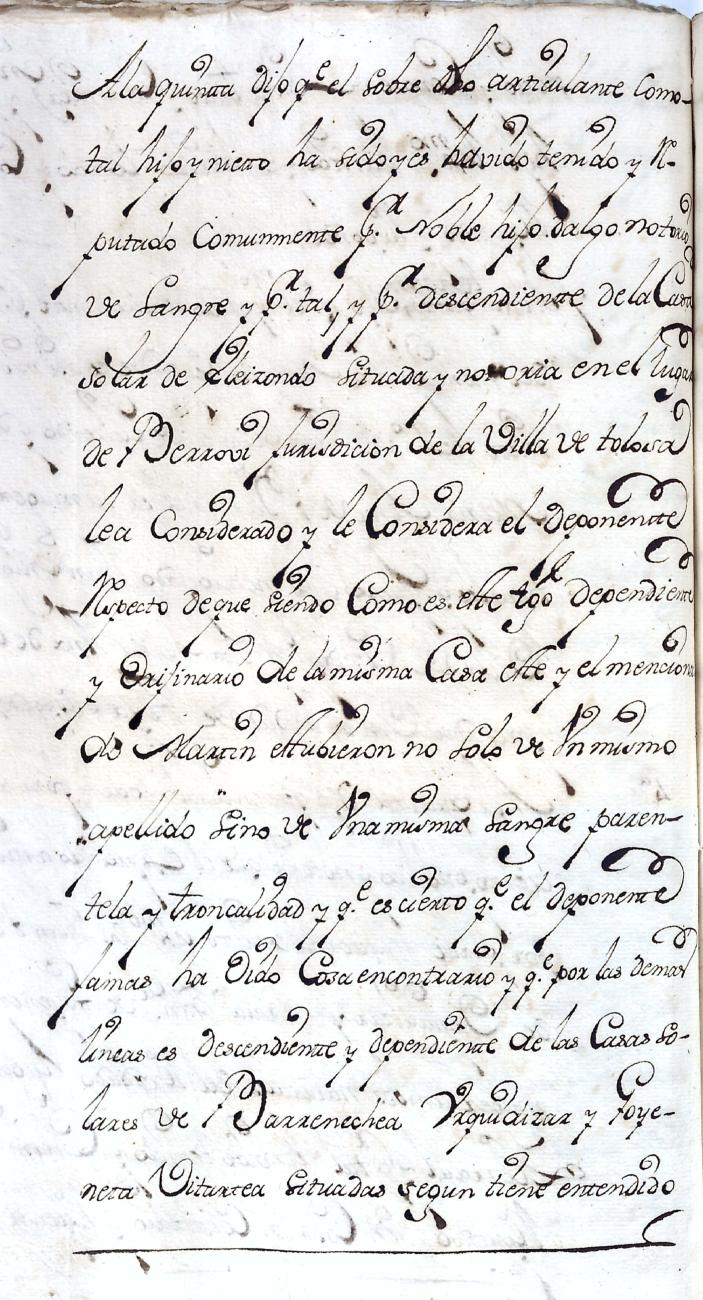 A la quinta dijo q.e el sobre dho articulante como
tal hijo y nieto ha sido y es havido tenido y Re-
putado Comunmente p.r Noble hijo dalgo notorio
de Sangre y p.r tal, y p.r descendiente de la Casa
solar de Eleizondo situada y notoria en el Lugar
de Berrovi jurisdicion de la Villa de tolosa
le a Considerado y le Considera el deponentte
Respecto de que siendo Como es este tgo dependiente
y Orijinario de la misma Casa este y el menciona
do Martin estubieron no solo de Un mismo
apellido sino de Una misma sangre paren-
tela y troncalidad y q.e es cierto q.e el deponente
jamas ha Oido Cosa encontrario y q.e por las demas
lineas es descendiente y dependiente de las Casas so-
lares de Barrenechea Vrquidizar y Goye-
neta Vitartea situadas segun tiene entendido